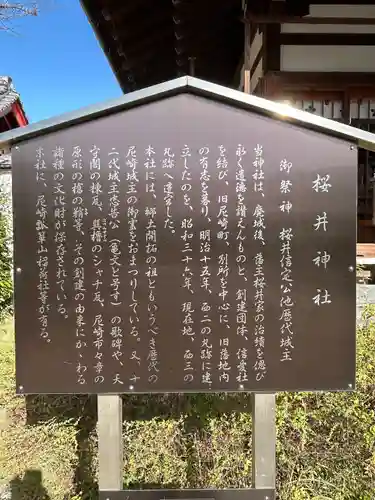 櫻井神社
御祭神 桜井信定公他歴代城主
当神社は、廃城後、藩主桜井家の治績を偲び
永く遺徳を讃えんものと、創建団体、信愛社
を結び、旧尼崎町、別所を中心に、旧藩地内
の有志を募り、明治十五年、西二の丸跡に建
立したのを、昭和三十六年、現在地、西三の
丸跡へ遷宮した。
本社には、郷土開拓の祖ともいうべき歴代の
尼崎城主の御霊をおまつりしている。又、十
二代城主忠喜公(亀文と号す)の歌碑や、天
守閣の棟瓦、異櫓のシャチ瓦、尼崎市々章の
原形の槍の鞘等、その創建の由来にかゝわる
諸種の文化財が保存されている。
末社に、尼崎瓢箪山稲荷社等が有る。